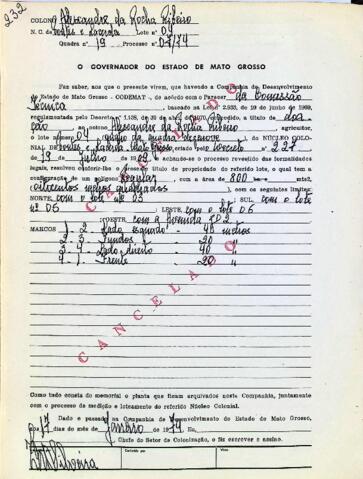 232
COLONO Alexandre da Rocha Ribeiro
N. C. de Lote nº 04
Quadra nº 19 Processo nº 07/74
O GOVERNADOR DO ESTADO DE MATO GROSSO
Faz saber, aos que o presente virem, que havendo a Companhia de Desenvolvimento
do Estado de Mato Grosso - CODEMAT -, de acordo com o Parecer da Comissão
Técnica, baseado na Lei nº 2.933, de 19 de junho de 1969,
regulamentada pelo Decreto nº 1.138, de 1970, concedido, a título de doa
ção ao colono Alexandre da Rocha Ribeiro agricultor,
o lote número 04 da quadra dezenove do NÚCLEO COLO-
NIAL DE Mato Grosso, pelo Decreto nº 227
de 19 de julho de e achando-se o processo revestido das formalidades
legais, resolveu conferir-lhe o presente título de propriedade do referido lote, o qual tem a
configuração de um polígono regular com a área de 800 mts2,
oitocentos metros quadrados, com os seguintes limites:
NORTE, com o lote nº 03 SUL com o lote
nº 05 LESTE com o lote 06
OESTE com a
MARCOS 1 - 2 Lado esquerdo 40 metros
2 - 3 Fundos 20 "
3 - 4 Lado direito 40 "
4 - 1 Frente 20 "
CANCELADO
CANCELADO
Como tudo consta do memorial e planta que ficam arquivados nesta Companhia, juntamente
com o processo de medição e loteamento do referido Núcleo Colonial.
Dado e passado na Companhia de Desenvolvimento do Estado de Mato Grosso,
aos 17 dias do mês de Janeiro de 1974 Eu,
Chefe do Setor de Colonização, o fiz escrever e assino.